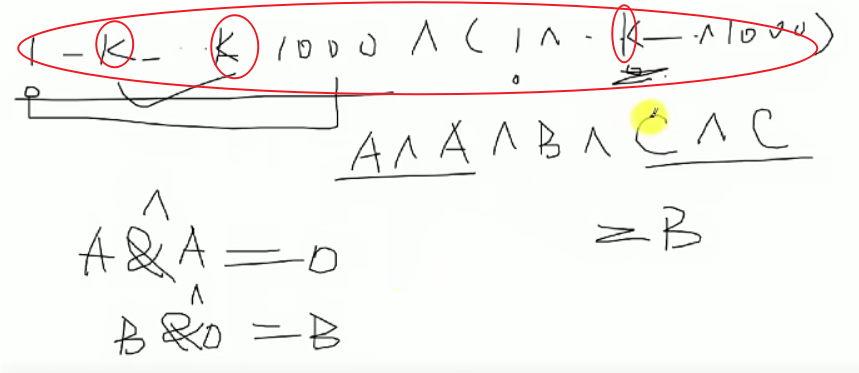 1 - K - ·· K 1000 ∧ ( 1 ∧ · K — ∧ 1000 )
A ∧ A ∧ B ∧ C ∧ C
= B
A & A = 0
∧
B & 0 = B
∧